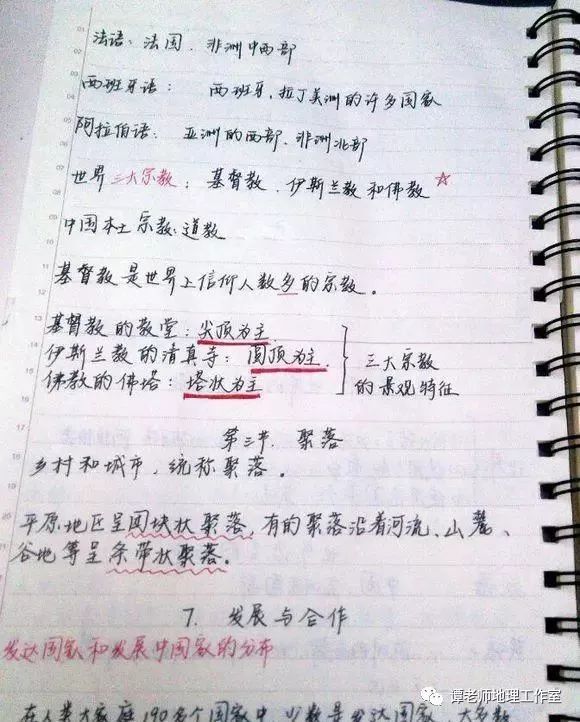 法语：法国、非洲中西部
西班牙语： 西班牙，拉丁美洲的许多国家
阿拉伯语： 亚洲的西部、非洲北部
世界三大宗教：基督教、伊斯兰教和佛教☆
中国本土宗教：道教
基督教是世界上信仰人数多的宗教。
基督教的教堂：尖顶为主
伊斯兰教的清真寺：圆顶为主
佛教的佛塔：塔状为主
三大宗教
的景观特征
第三节、聚落
乡村和城市，统称聚落。
平原地区呈团块状聚落，有的聚落沿着河流、山麓、
谷地等呈条带状聚落。
7. 发展与合作
发达国家和发展中国家的分布
在人类大家庭190多个国家中，少数是发达国家，大多数
谭老师地理工作室